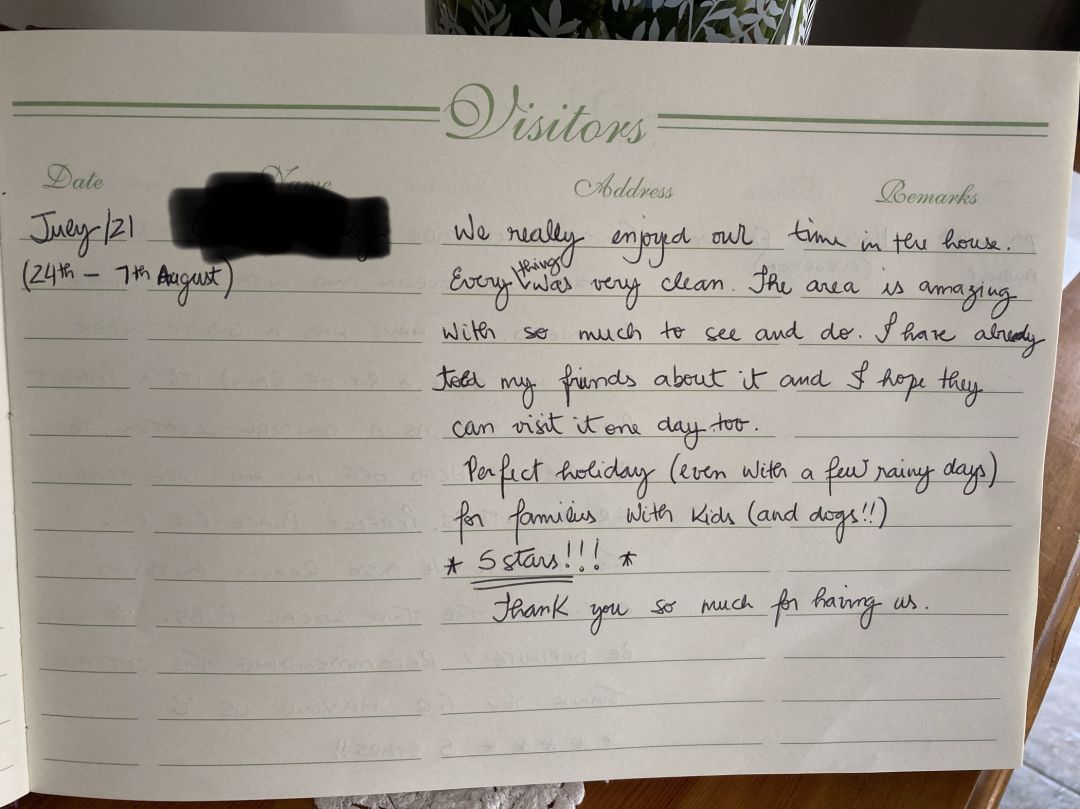 Visitors
Date Name Address Remarks
July/21 We really enjoyed our time in the house.
(24th - 7th August) Everything was very clean. The area is amazing
with so much to see and do. I have already
told my friends about it and I hope they
can visit it one day too.
Perfect holiday (even with a few rainy days)
for families with kids (and dogs!!)
* 5 stars!!! *
Thank you so much for having us.